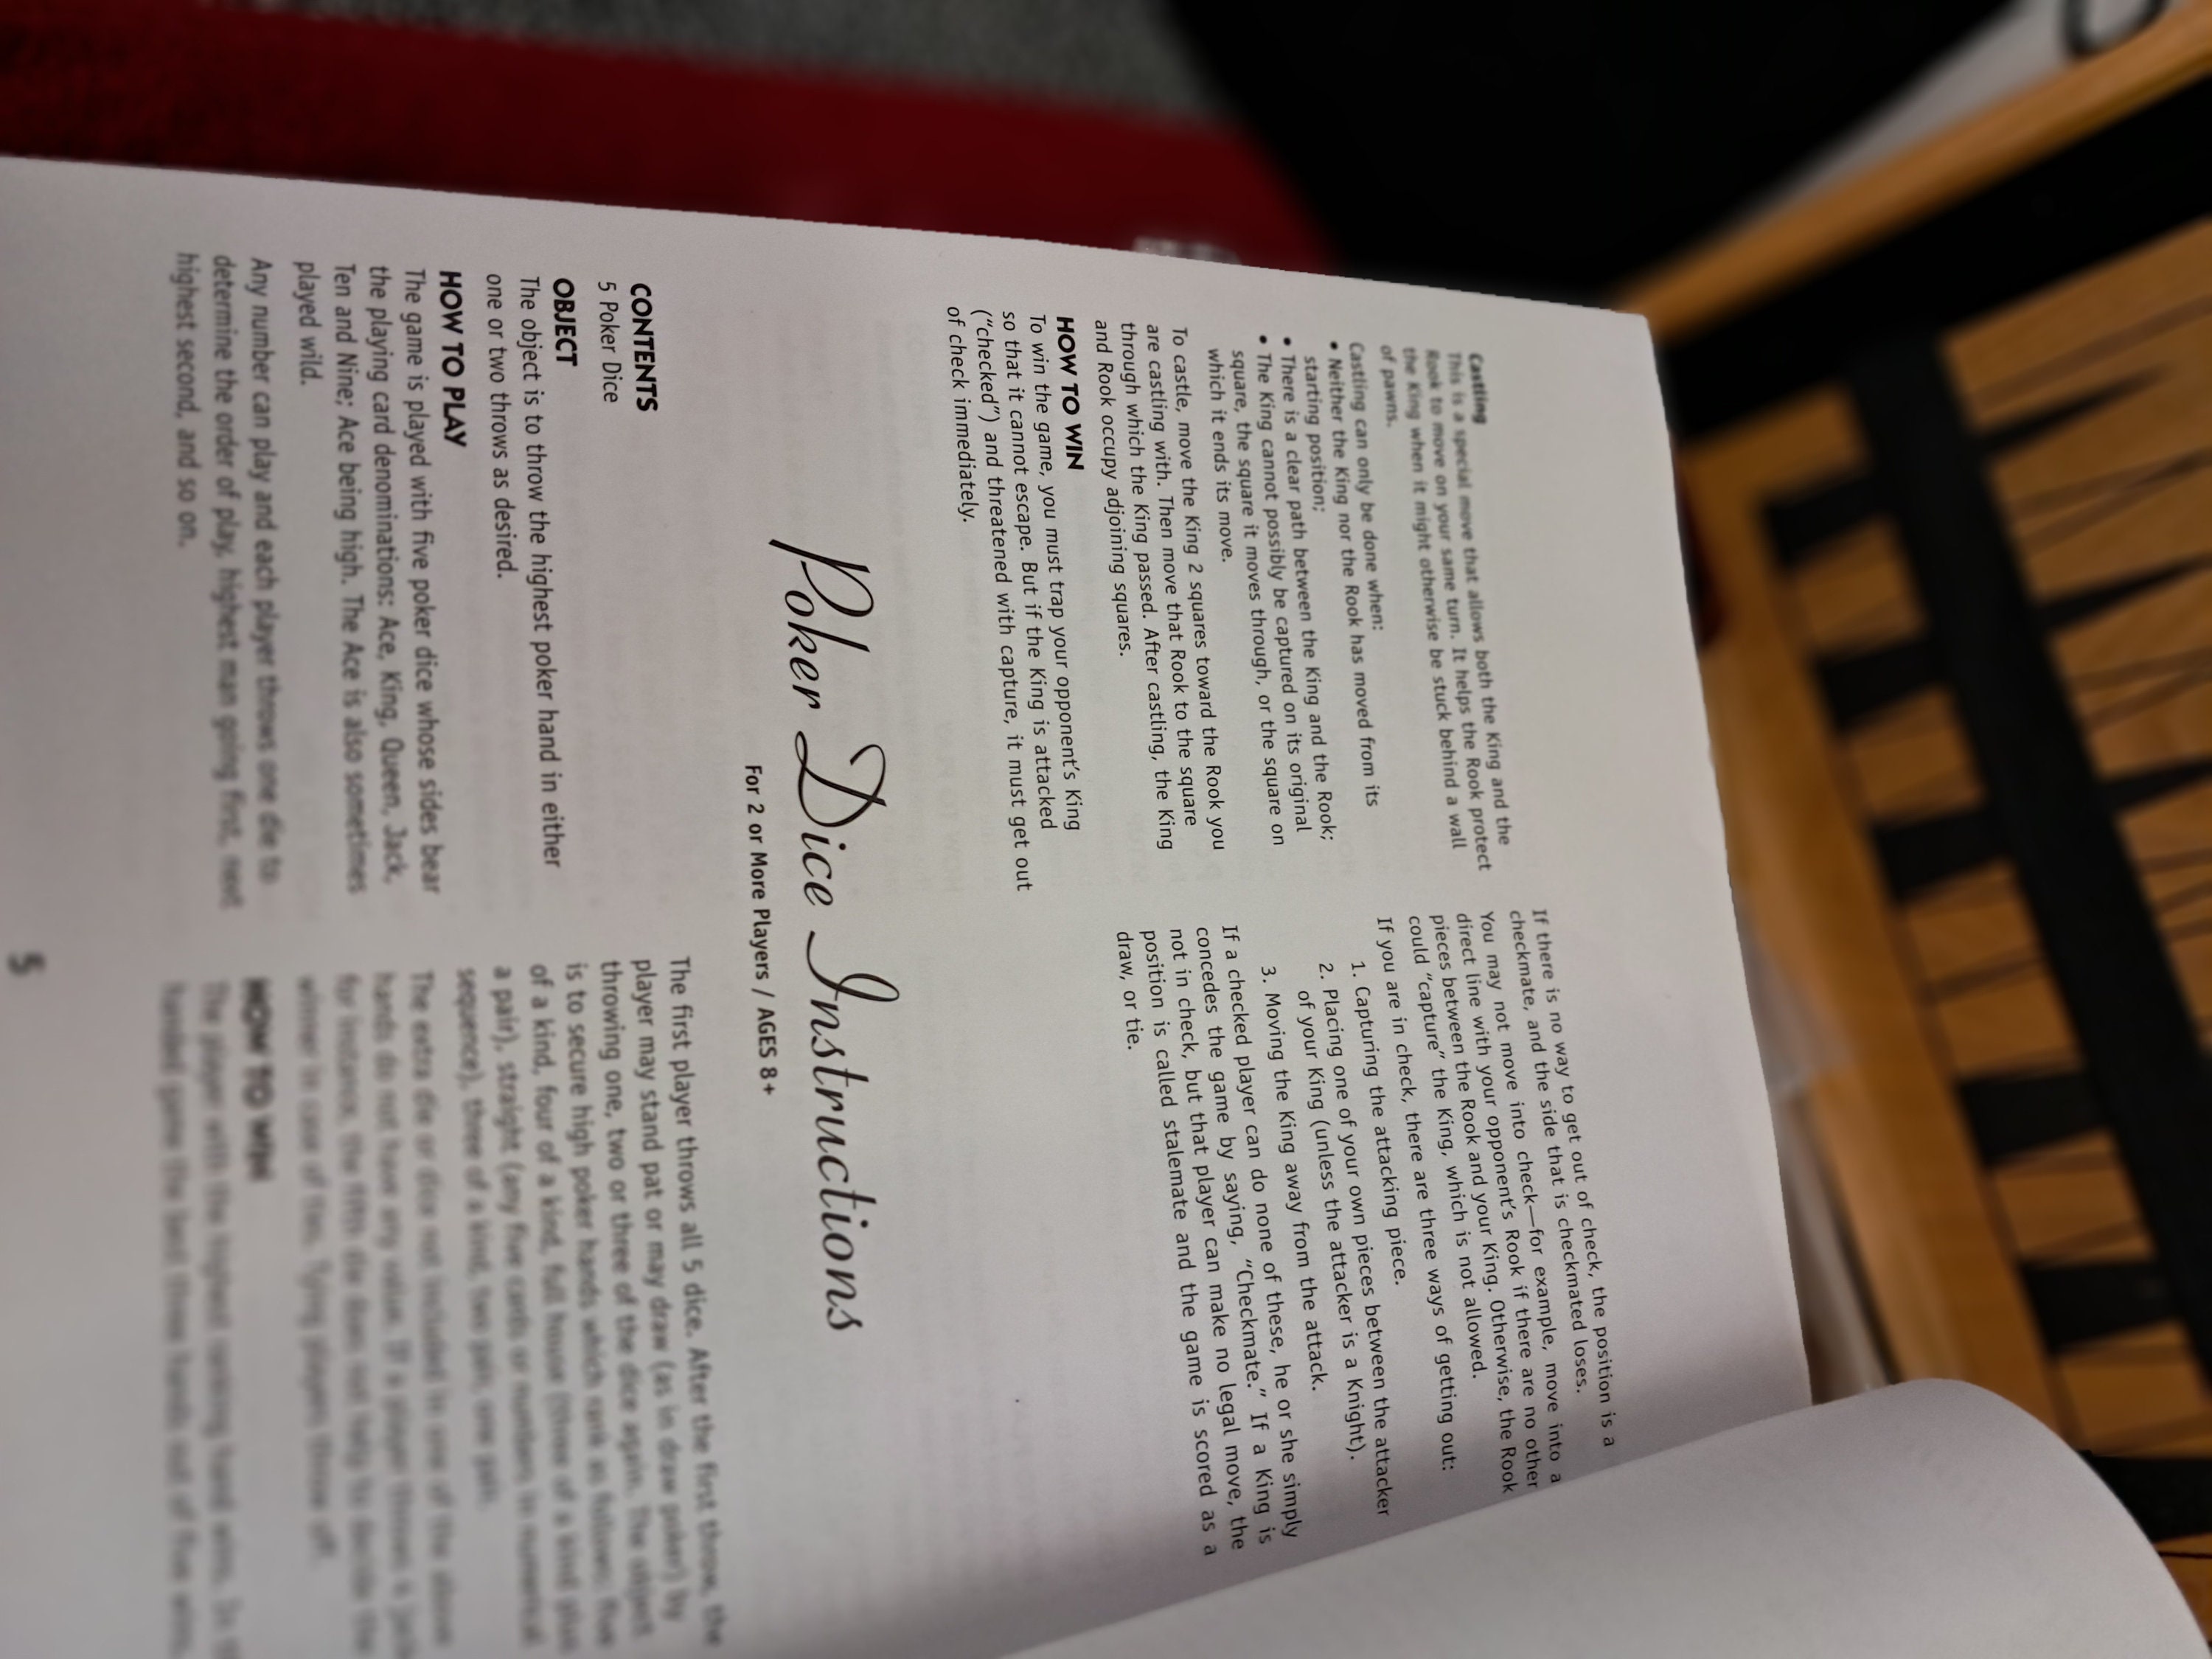 Castling
This is a special move that allows both the King and the
Rook to move on your same turn. It helps the Rook protect
the King when it might otherwise be stuck behind a wall
of pawns.
Castling can only be done when:
• Neither the King nor the Rook has moved from its
starting position;
• There is a clear path between the King and the Rook;
• The King cannot possibly be captured on its original
square, the square it moves through, or the square on
which it ends its move.
To castle, move the King 2 squares toward the Rook you
are castling with. Then move that Rook to the square
through which the King passed. After castling, the King
and Rook occupy adjoining squares.
HOW TO WIN
To win the game, you must trap your opponent's King
so that it cannot escape. But if the King is attacked
("checked") and threatened with capture, it must get out
of check immediately.
If there is no way to get out of check, the position is a
checkmate, and the side that is checkmated loses.
You may not move into check—for example, move into a
direct line with your opponent's Rook if there are no other
pieces between the Rook and your King. Otherwise, the Rook
could "capture" the King, which is not allowed.
If you are in check, there are three ways of getting out:
1. Capturing the attacking piece.
2. Placing one of your own pieces between the attacker
of your King (unless the attacker is a Knight).
3. Moving the King away from the attack.
If a checked player can do none of these, he or she simply
concedes the game by saying, "Checkmate." If a King is
not in check, but that player can make no legal move, the
position is called stalemate and the game is scored as a
draw, or tie.
Poker Dice Instructions
For 2 or More Players / AGES 8+
CONTENTS
5 Poker Dice
OBJECT
The object is to throw the highest poker hand in either
one or two throws as desired.
HOW TO PLAY
The game is played with five poker dice whose sides bear
the playing card denominations: Ace, King, Queen, Jack,
Ten and Nine; Ace being high. The Ace is also sometimes
played wild.
Any number can play and each player throws one die to
determine the order of play, highest man going first, next
highest second, and so on.
The first player throws all 5 dice. After the first throw, the
player may stand pat or may draw (as in draw poker) by
throwing one, two or three of the dice again. The object
is to secure high poker hands which rank as follows: five
of a kind, four of a kind, full house (three of a kind plus
a pair), straight (any five cards or numbers in numerical
sequence), three of a kind, two pair, one pair.
The extra die or dice not included in one of the above
hands do not have any value. If a player throws 4
for instance, the fifth die does not help to decide the
winner in case of ties. Tying players throw off.
HOW TO WIN
The player with the highest ranking hand wins. In
handed game the best three hands out of five wins.
5